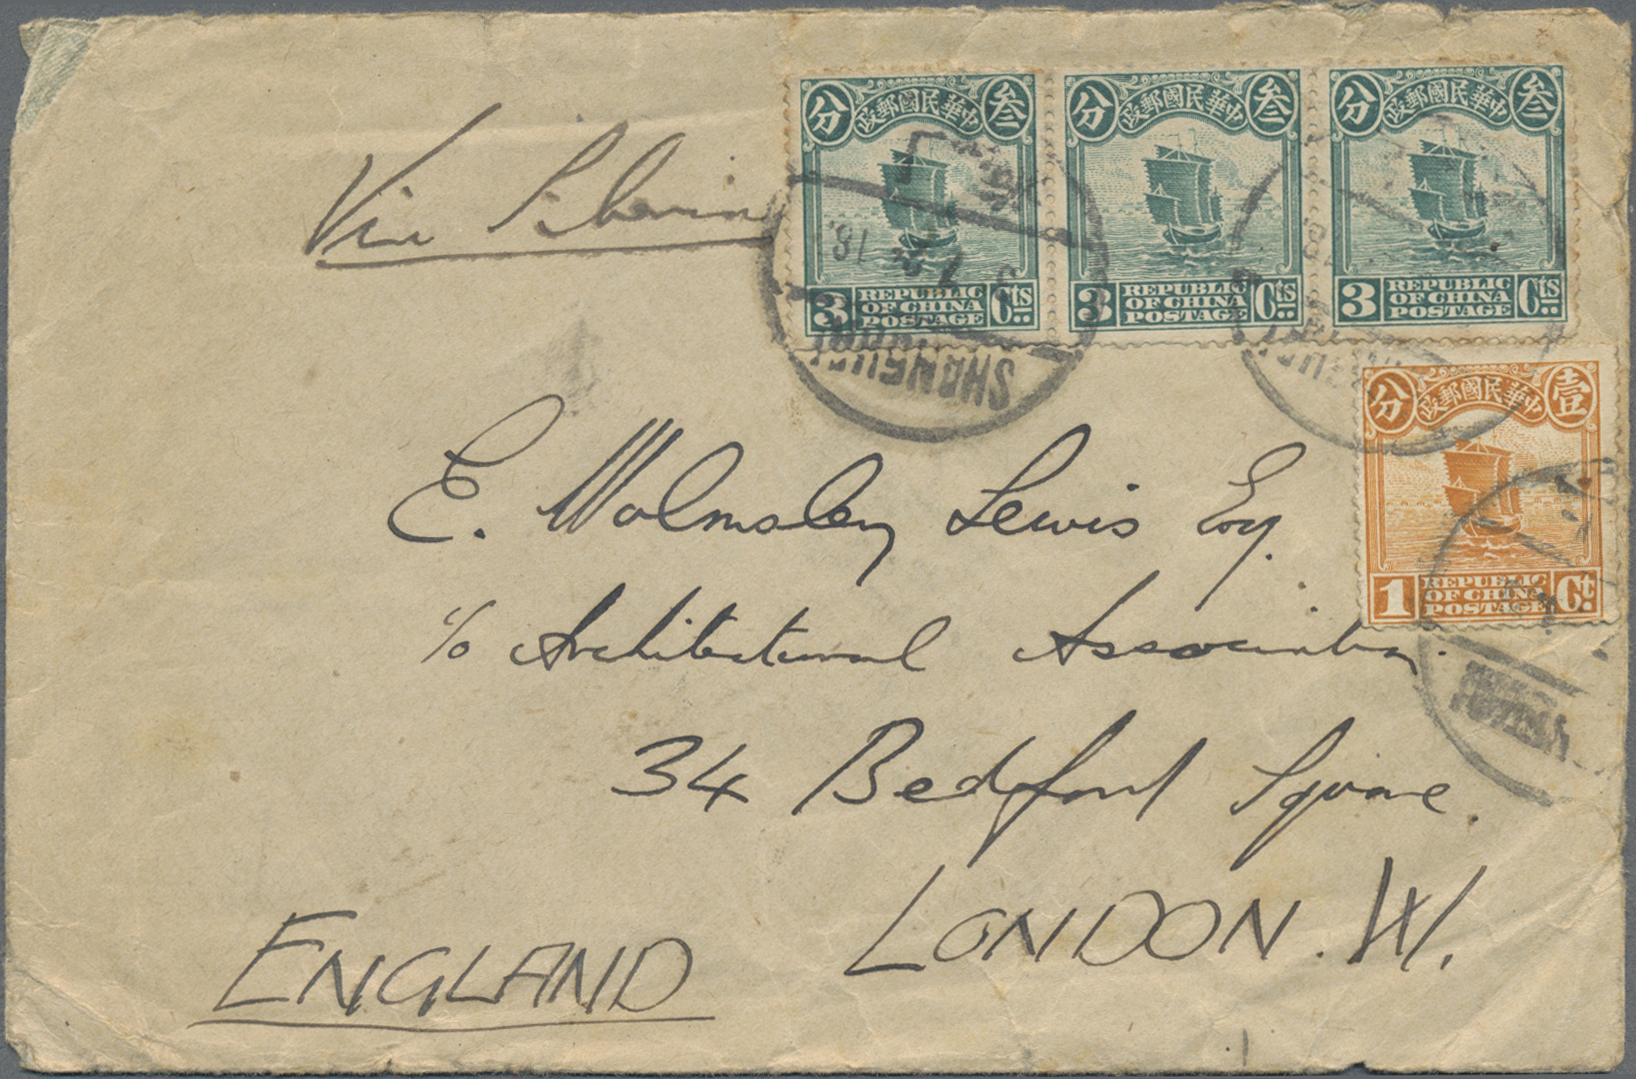 Via Siberia
分 政郵國民華中 叁
3 REPUBLIC OF CHINA POSTAGE Cts
分 政郵國民華中 叁
3 REPUBLIC OF CHINA POSTAGE Cts
分 政郵國民華中 叁
3 REPUBLIC OF CHINA POSTAGE Cts
SHANGHAI
分 政郵國民華中 壹
1 REPUBLIC OF CHINA POSTAGE Ct.
E. Walmsley Lewis Esq.
c/o Architectural Association.
34 Bedford Square.
LONDON. W.
ENGLAND